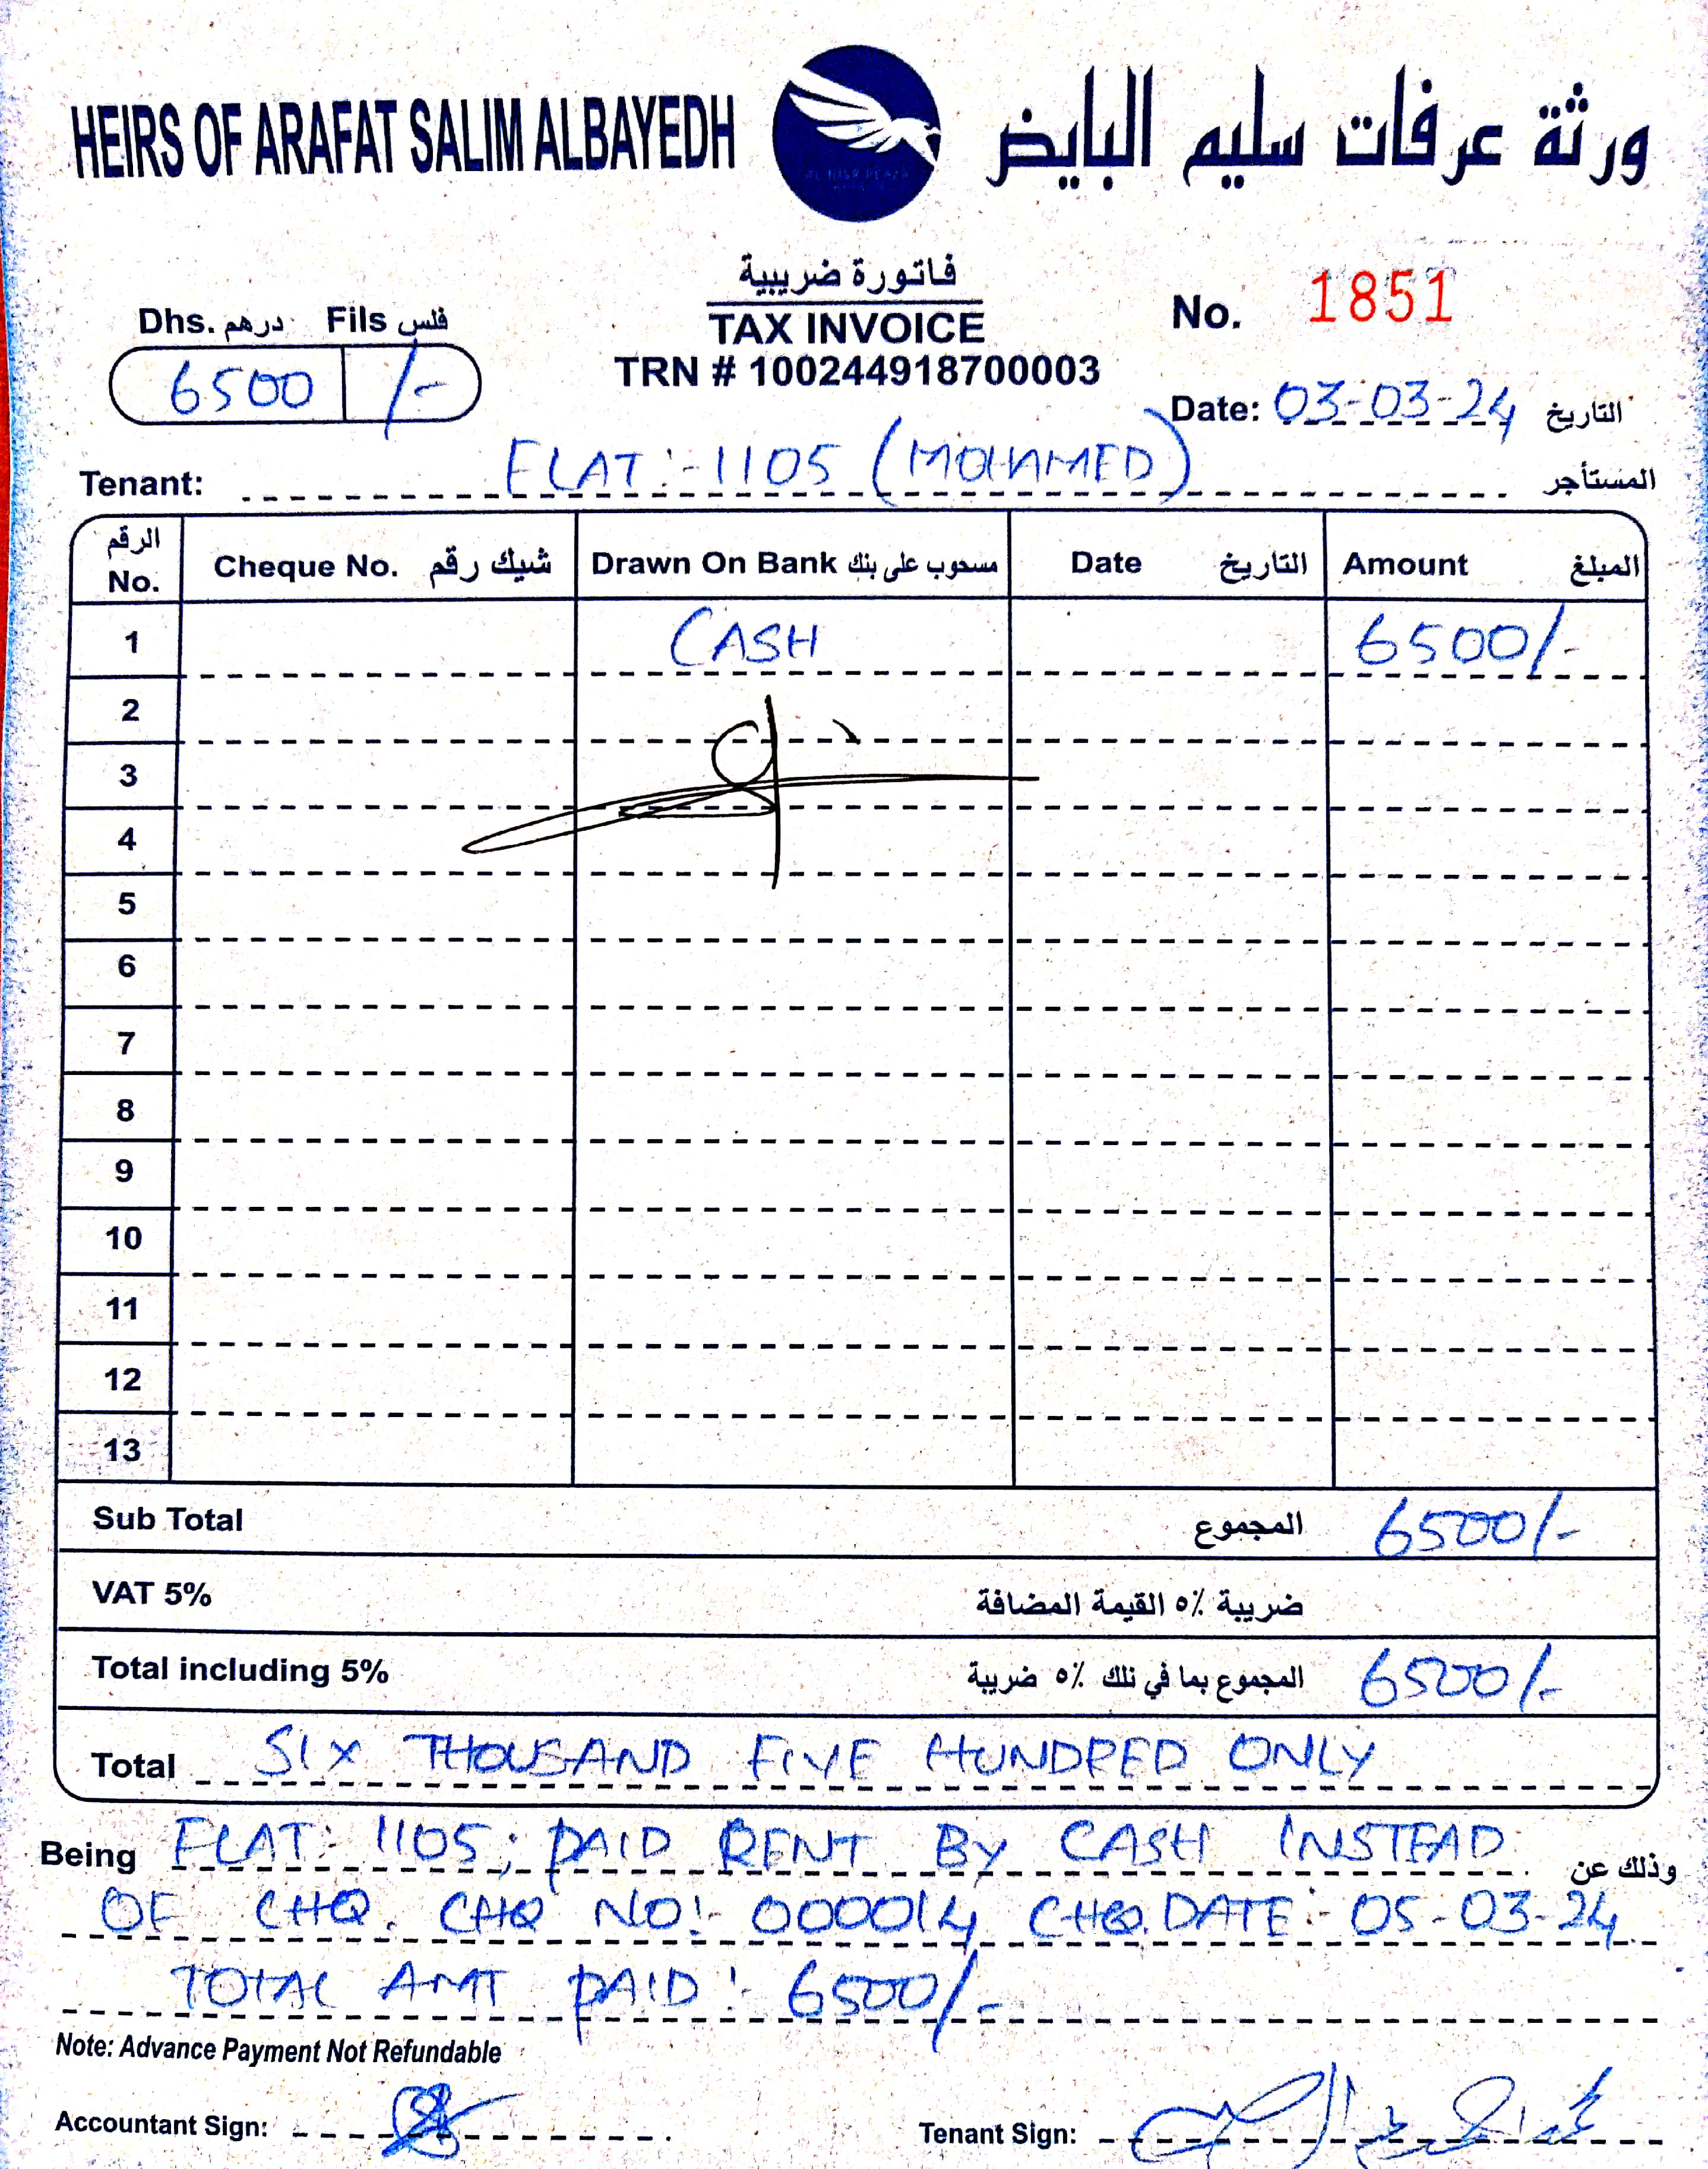 HEIRS OF ARAFAT SALIM ALBAYEDH
ورثة عرفات سليم البايض
AL NISR PLAZA
فاتورة ضريبية
TAX INVOICE
TRN # 100244918700003
Dhs. درهم Fils فلس
6500 /-
No. 1851
Date: 03-03-24 التاريخ
Tenant: FLAT:-1105 (MOHAMED) المستأجر
الرقم No. Cheque No. شيك رقم Drawn On Bank مسحوب على بنك Date التاريخ Amount المبلغ
1 CASH 6500/-
2
3
4
5
6
7
8
9
10
11
12
13
Sub Total المجموع 6500/-
VAT 5% ضريبة ٥٪ القيمة المضافة
Total including 5% المجموع بما في ذلك ٥٪ ضريبة 6500/-
Total SIX THOUSAND FIVE HUNDRED ONLY
Being FLAT:- 1105; PAID RENT BY CASH INSTEAD وذلك عن
OF CHQ. CHQ NO:- 000014 CHQ.DATE:- 05-03-24
TOTAL AMT PAID:- 6500/-
Note: Advance Payment Not Refundable
Accountant Sign:
Tenant Sign: